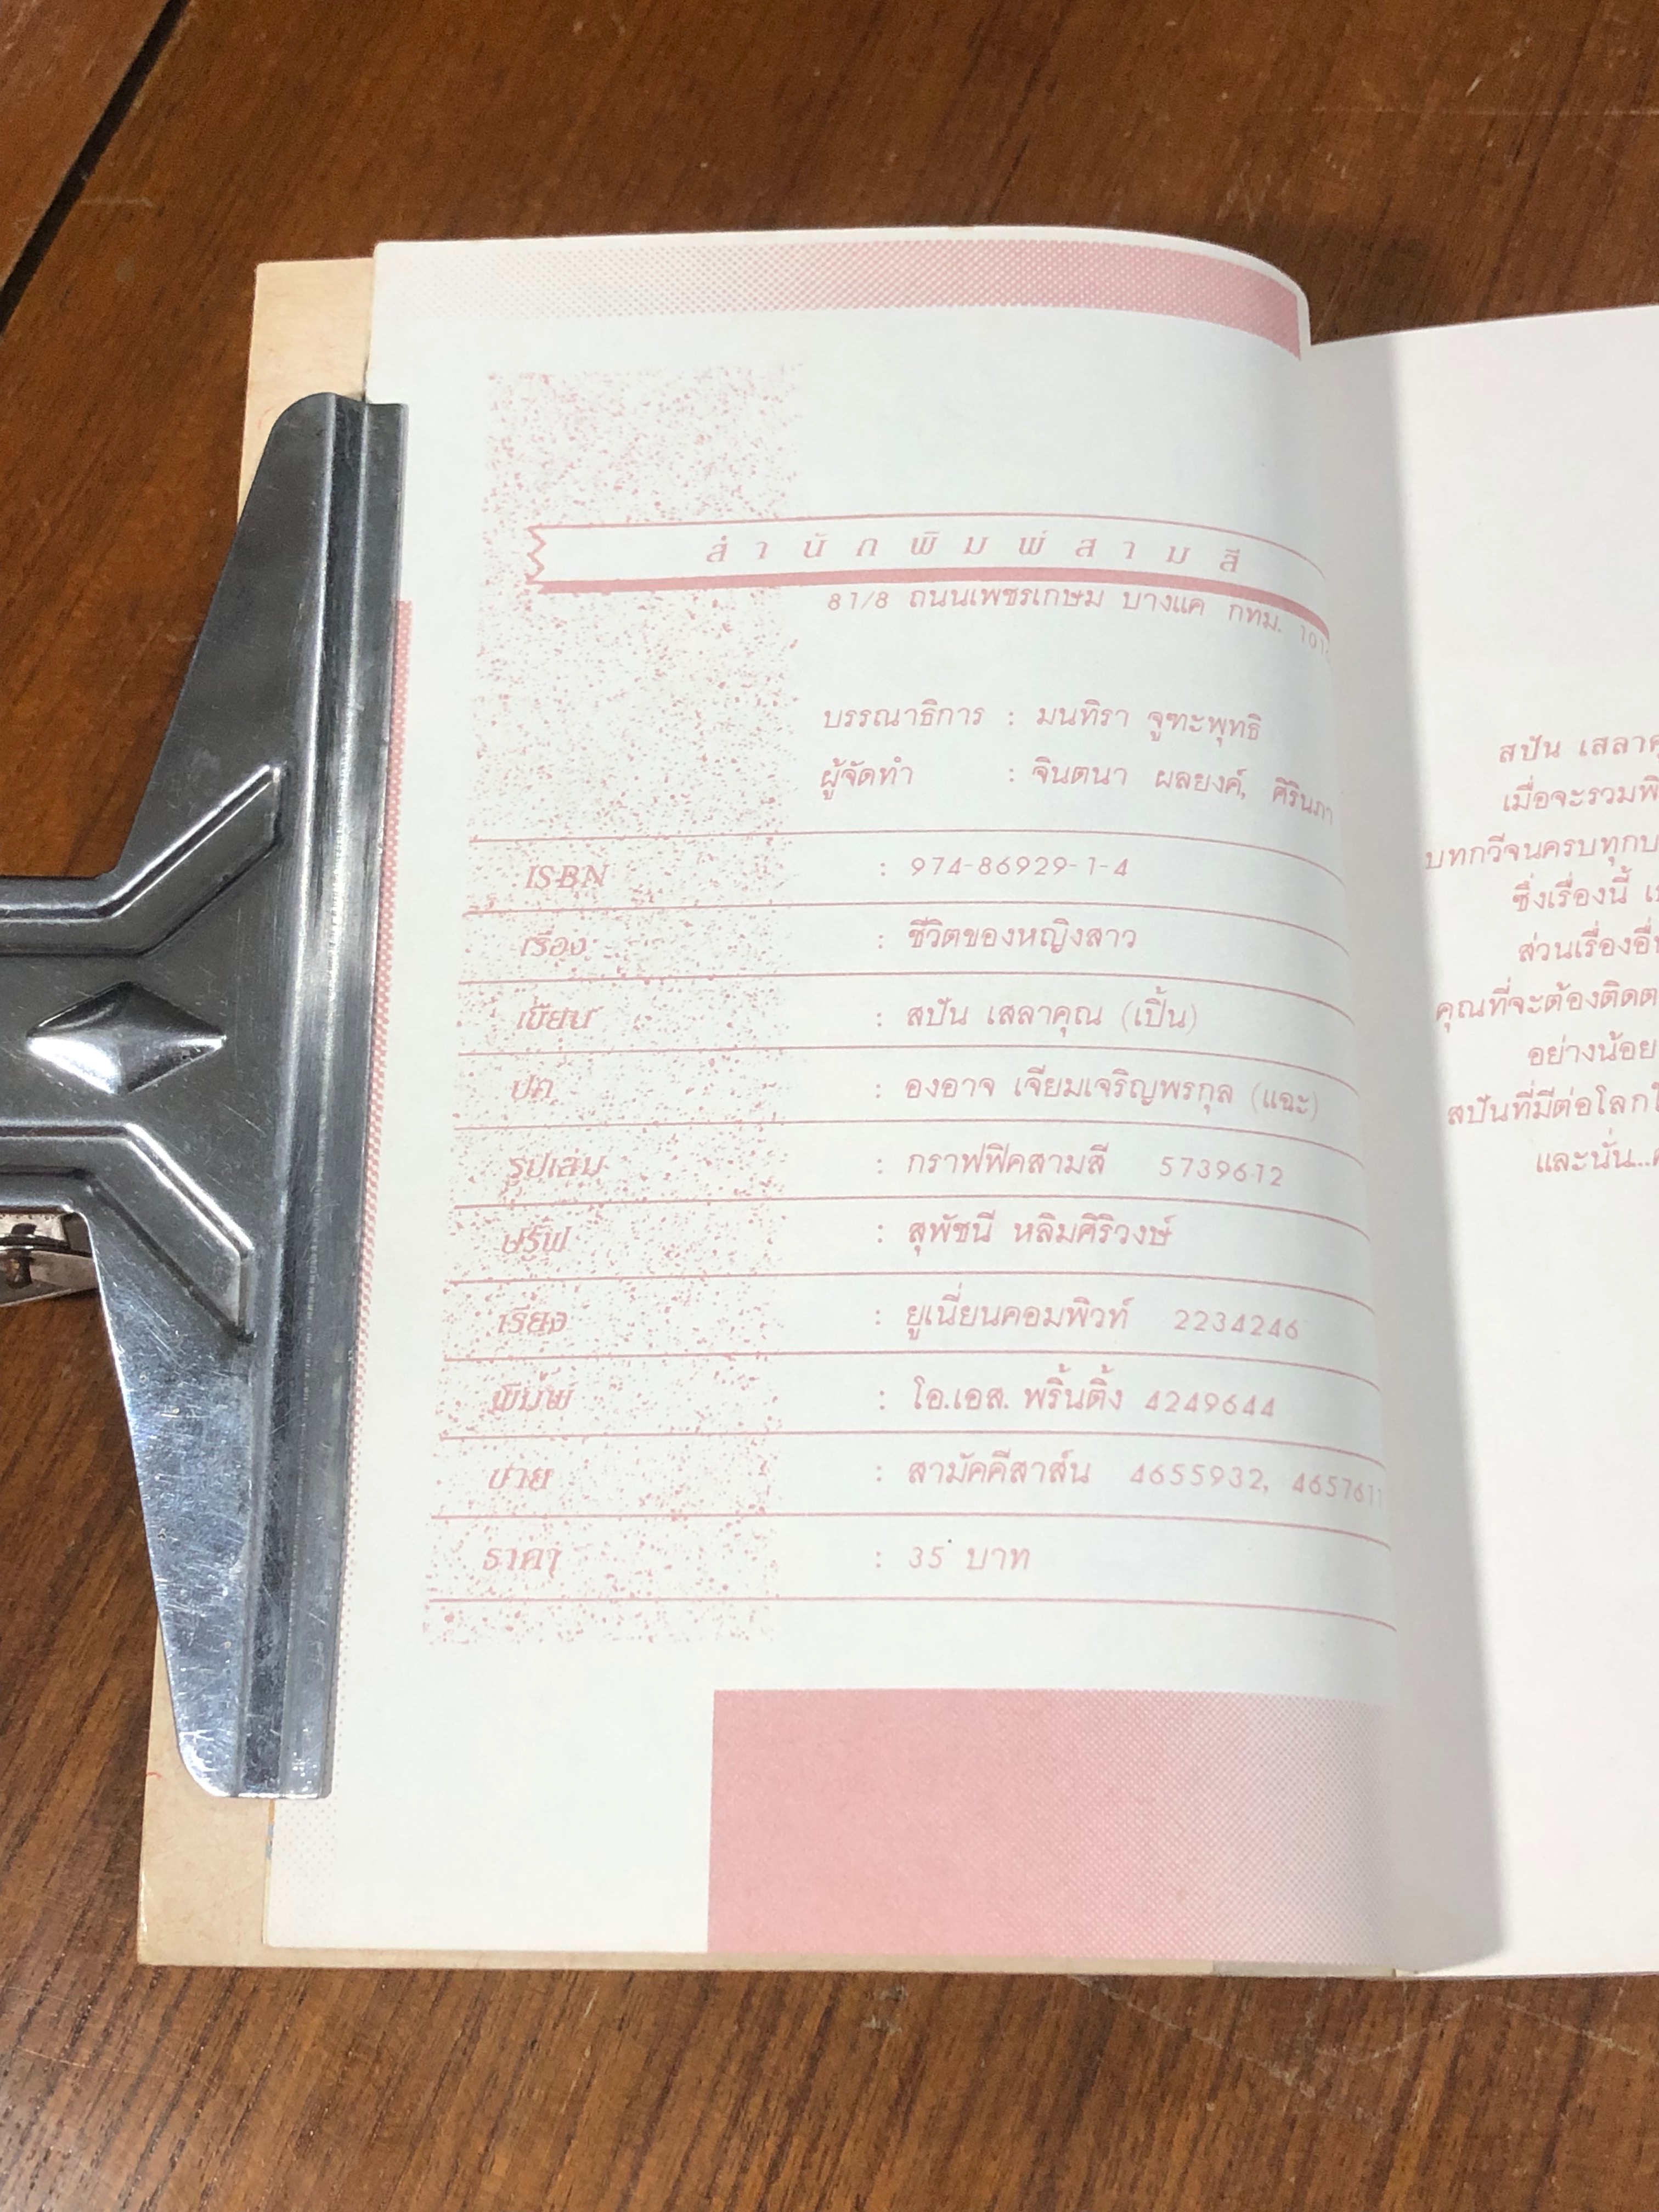 สำนักพิมพ์สามสี
81/8 ถนนเพชรเกษม บางแค กทม.
บรรณาธิการ : มนทิรา จูฑะพุทธิ
ผู้จัดทำ : จินตนา ผลยงค์, ศิรินภา
ISBN : 974-86929-1-4
เรื่อง : ชีวิตของหญิงสาว
เขียน : สปัน เสลาคุณ (เปิ้น)
ปก : องอาจ เจียมเจริญพรกุล (แฉะ)
รูปเล่ม : กราฟฟิคสามสี 5739612
ปรู๊ฟ : สุพัชนี หลิมศิริวงษ์
เรียง : ยูเนี่ยนคอมพิวท์ 2234246
พิมพ์ : โอ.เอส. พริ้นติ้ง 4249644
ขาย : สามัคคีสาส์น 4655932, 4657611
ราคา : 35 บาท
สปัน
เมื่อจะรวม
บทกวีจนครบทุก
ซึ่งเรื่องนี้
ส่วนเรื่อง
คุณที่จะต้อง
อย่างน้อย
สปันที่มีต่อโลก
และนั่น...